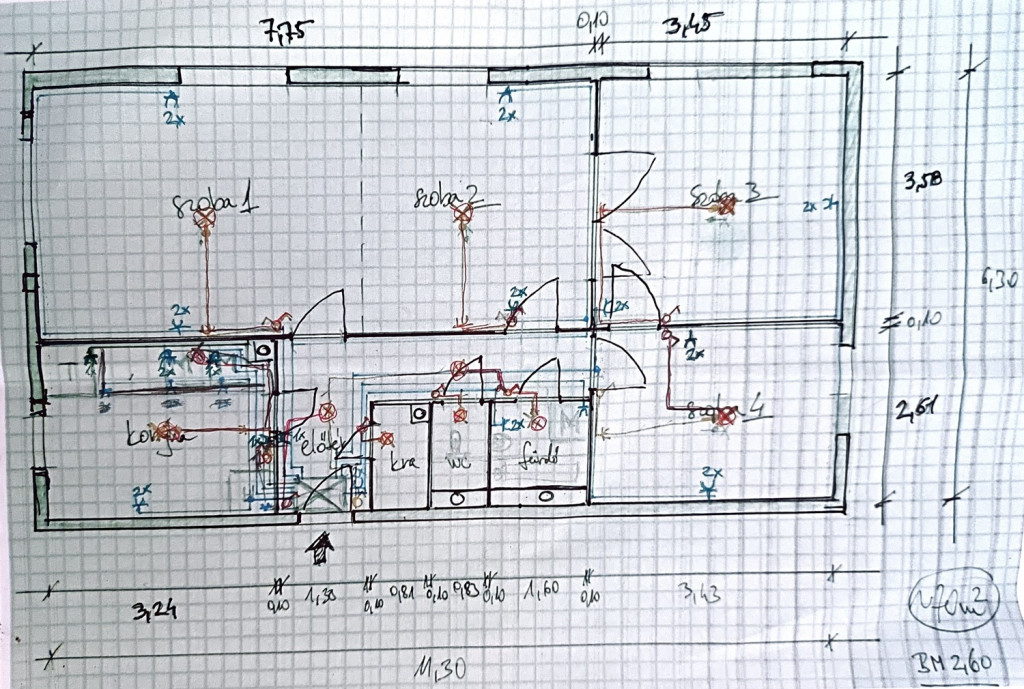 7,75
0,10
3,45
2x
2x
3,58
szoba 1
szoba 2
szoba 3
2x
6,30
2x
2x
2x
0,10
2x
2x
2x
2x
szoba 4
2,61
konyha
előtér
kra
wc
fürdő
2x
2x
2x
3,24
0,10
1,30
0,10
0,81
0,10
0,83
0,10
1,60
0,10
3,43
11,30
BM 2,60